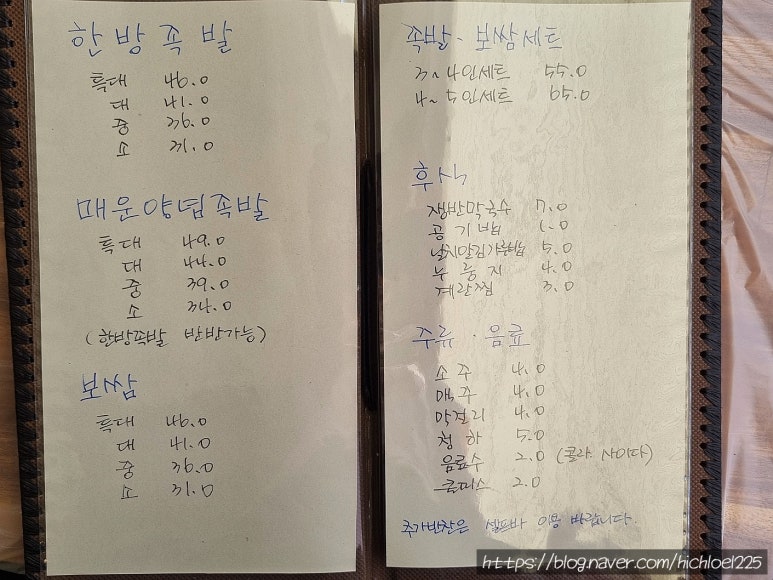 한방족발
특대 46.0
대 41.0
중 36.0
소 31.0
매운양념족발
특대 49.0
대 44.0
중 39.0
소 34.0
(한방족발 반반가능)
보쌈
특대 46.0
대 41.0
중 36.0
소 31.0
족발·보쌈세트
3~4인세트 55.0
4~5인세트 65.0
후식
쟁반막국수 7.0
공기밥 1.0
5.0
누룽지 4.0
계란찜 3.0
주류·음료
소주 4.0
맥주 4.0
막걸리 4.0
청하 5.0
음료수 2.0 (콜라 사이다)
쿨피스 2.0
추가반찬은 셀프바 이용 바랍니다.
https://blog.naver.com/hichloe1225